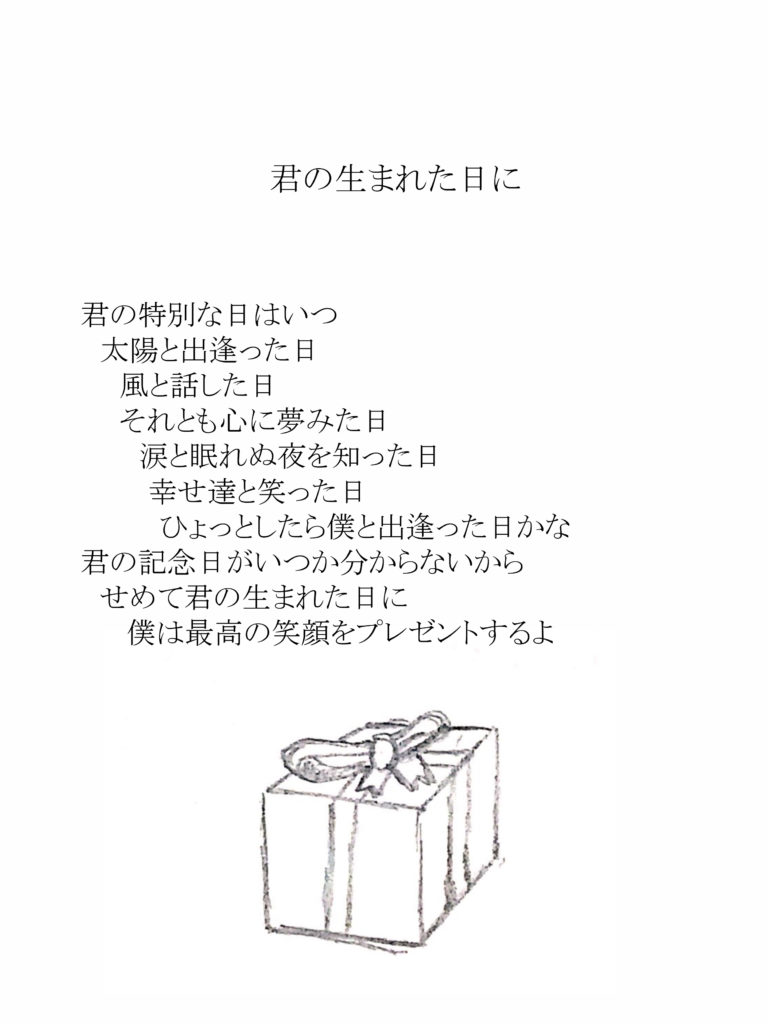 君の生まれた日に
君の特別な日はいつ
太陽と出逢った日
風と話した日
それとも心に夢みた日
涙と眠れぬ夜を知った日
幸せ達と笑った日
ひょっとしたら僕と出逢った日かな
君の記念日がいつか分からないから
せめて君の生まれた日に
僕は最高の笑顔をプレゼントするよ